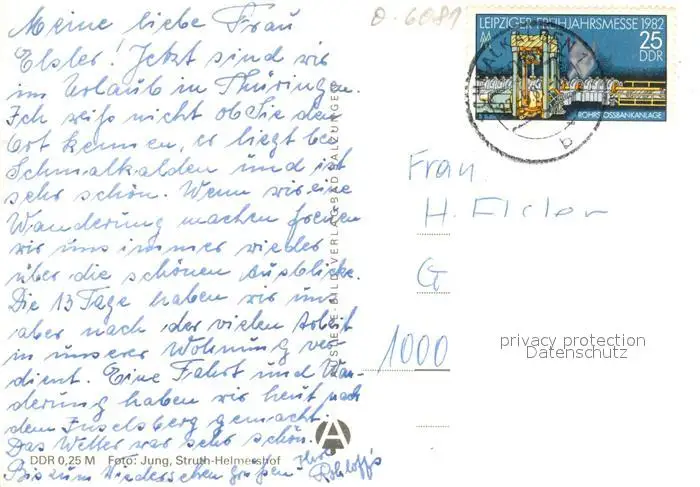 Meine liebe Frau
Elsler! Jetzt sind wir
im Urlaub in Thüringen.
Ich weiß nicht ob Sie den
Ort kennen, er liegt bei
Schmalkalden und ist
sehr schön. Wenn wir eine
Wanderung machen freuen
wir uns immer wieder
über die schönen Ausblicke.
Die 13 Tage haben wir uns
aber nach der vielen Arbeit
in unserer Wohnung ver-
dient. Eine Fahrt und Wan-
derung haben wir heut nach
dem Inselsberg gemacht.
Das Wetter war sehr schön.
Bis zum Wiedersehen grüßen Ihre
Rohloffs
DDR 0,25 M Foto: Jung, Struth-Helmershof
VERLAG BAD SALZUNGEN
A
0.6081
LEIPZIGER FRÜHJAHRSMESSE 1982
25
DDR
ROHRSTOSSBANKANLAGE
b
Frau
H. Elsler
G
1000
privacy protection
Datenschutz